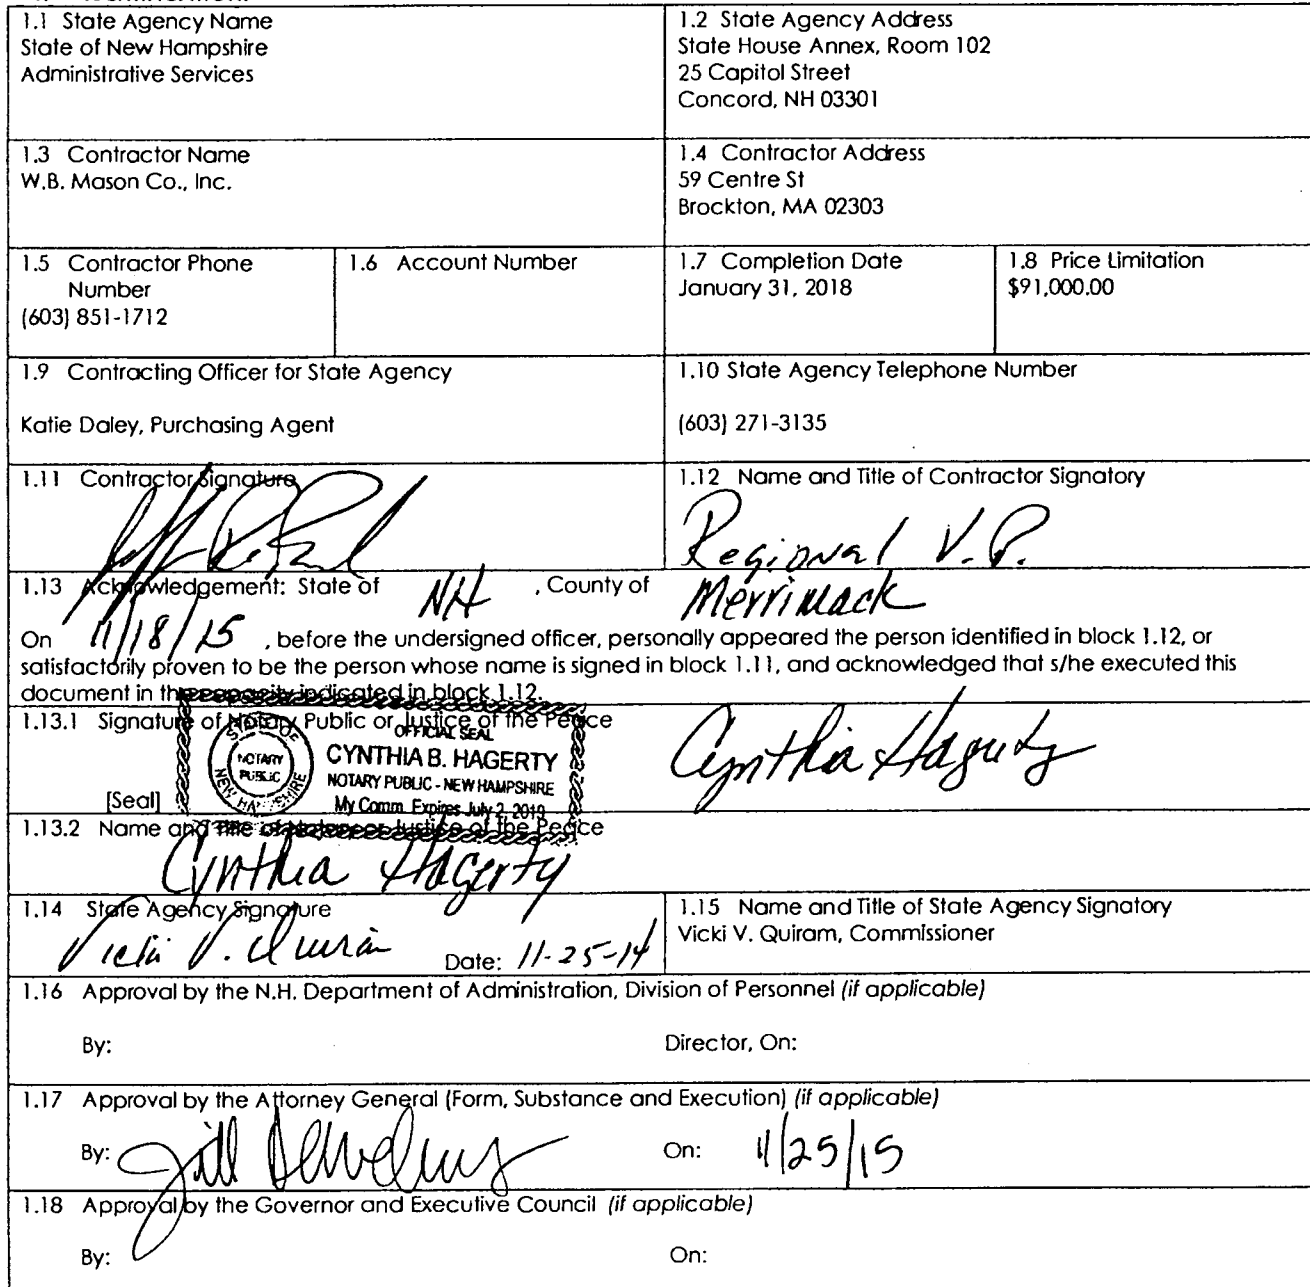 1.1 State Agency Name
State of New Hampshire
Administrative Services
1.2 State Agency Address
State House Annex, Room 102
25 Capitol Street
Concord, NH 03301
1.3 Contractor Name
W.B. Mason Co., Inc.
1.4 Contractor Address
59 Centre St
Brockton, MA 02303
1.5 Contractor Phone
Number
(603) 851-1712
1.6 Account Number
1.7 Completion Date
January 31, 2018
1.8 Price Limitation
$91,000.00
1.9 Contracting Officer for State Agency
Katie Daley, Purchasing Agent
1.10 State Agency Telephone Number
(603) 271-3135
1.11 Contractor Signature
1.12 Name and Title of Contractor Signatory
Regional V.P.
1.13 Acknowledgement: State of NH , County of Merrimack
On 11/18/15 , before the undersigned officer, personally appeared the person identified in block 1.12, or
satisfactorily proven to be the person whose name is signed in block 1.11, and acknowledged that s/he executed this
document in the capacity indicated in block 1.12.
1.13.1 Signature of Notary Public or Justice of the Peace
Cynthia Hagerty
[Seal]
STATE OF
NOTARY
PUBLIC
NEW HAMPSHIRE
OFFICIAL SEAL
CYNTHIA B. HAGERTY
NOTARY PUBLIC - NEW HAMPSHIRE
My Comm. Expires July 2, 2019
1.13.2 Name and Title of Notary or Justice of the Peace
Cynthia Hagerty
1.14 State Agency Signature
Vicki V. Quiram Date: 11-25-14
1.15 Name and Title of State Agency Signatory
Vicki V. Quiram, Commissioner
1.16 Approval by the N.H. Department of Administration, Division of Personnel (if applicable)
By: Director, On:
1.17 Approval by the Attorney General (Form, Substance and Execution) (if applicable)
By: Jill On: 11/25/15
1.18 Approval by the Governor and Executive Council (if applicable)
By: On: